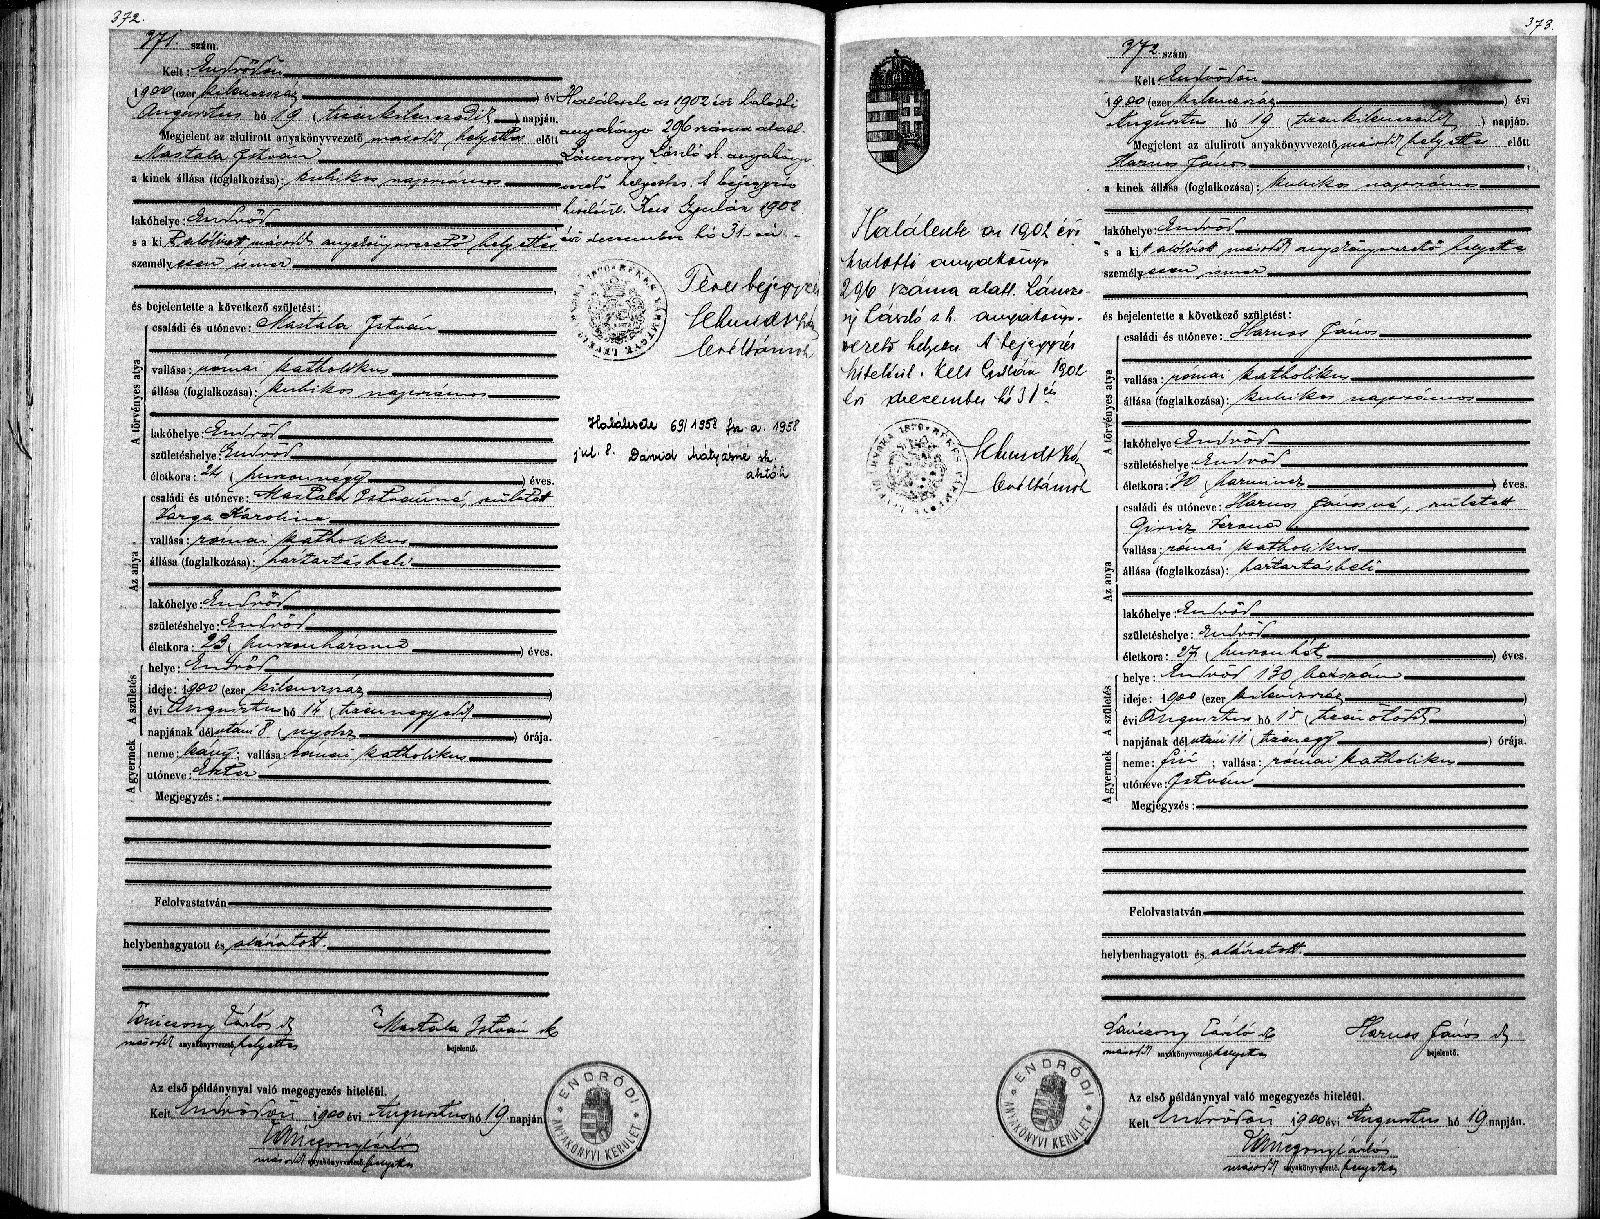 372.
371. szám.
Kelt: Endrődön
1900 (ezer kilencszáz) évi
Augusztus hó 19 (tizenkilencedik) napján.
Megjelent az alulirott anyakönyvvezető másodh. helyettes előtt
Mastala István
a kinek állása (foglalkozása): kubikos napszámos
lakóhelye: Endrőd
s a ki alólirott másodh. anyakönyvvezető helyettes
személyesen ismer
és bejelentette a következő születést:
A törvényes atya
családi és utóneve: Mastala István
vallása: római katholikus
állása (foglalkozása): kubikos napszámos
lakóhelye: Endrőd
születéshelye: Endrőd
életkora: 24 (huszonnégy) éves.
Az anya
családi és utóneve: Mastala Istvánné, született
Varga Karolina
vallása: római katholikus
állása (foglalkozása): háztartásbeli
lakóhelye: Endrőd
születéshelye: Endrőd
életkora: 23 (huszonhárom) éves.
A születés
helye: Endrőd
ideje: 1900 (ezer kilencszáz)
évi Augusztus hó 14 (tizennegyedik)
napjának délután 8 (nyolcz) órája.
A gyermek
neme: leány; vallása: római katholikus
utóneve: Eszter
Megjegyzés:
Felolvastatván
helybenhagyatott és aláiratott.
Lánczony László sk Mastala István sk
másodh. anyakönyvvezető helyettes bejelentő.
Az első példánynyal való megegyezés hiteléül.
Kelt Endrődön 1900 évi Augusztus hó 19 napján.
Lánczony László
másodh. anyakönyvvezető helyettes
ENDRŐDI ANYAKÖNYVI KERÜLET
Halálesete az 1902 évi halotti
anyakönyv 296 száma alatt.
Lánczony László sk. anyakönyv
vezető helyettes. A bejegyzés
hiteléül. Kelt Gyulán 1902
évi december hó 31-én
Téves bejegyzés
levéltárnok
Halálesete 69/1958 fsz. a. 1958
júl. 8. Dávid Mátyásné sk.
373.
372 szám
Kelt Endrődön
1900 (ezer kilencszáz) évi
Augusztus hó 19 (tizenkilencedik) napján.
Megjelent az alulirott anyakönyvvezető másodh. helyettes előtt
Harnos János
a kinek állása (foglalkozása): kubikos napszámos
lakóhelye: Endrőd
s a ki alólirott másodh. anyakönyvvezető helyettes
személyesen ismer
és bejelentette a következő születést:
A törvényes atya
családi és utóneve: Harnos János
vallása: római katholikus
állása (foglalkozása): kubikos napszámos
lakóhelye: Endrőd
születéshelye: Endrőd
életkora: 30 (harmincz) éves.
Az anya
családi és utóneve: Harnos Jánosné, született
vallása: római katholikus
állása (foglalkozása): háztartásbeli
lakóhelye: Endrőd
születéshelye: Endrőd
életkora: 27 (huszonhét) éves.
A születés
helye: Endrőd 130 házszám
ideje: 1900 (ezer kilencszáz
évi Augusztus hó 15 (tizenötödik)
napjának délután 11 (tizenegy) órája.
A gyermek
neme: fiú; vallása: római katholikus
utóneve: István
Megjegyzés:
Felolvastatván
helybenhagyatott és aláiratott.
Lánczony László sk Harnos János sk
másodh. anyakönyvvezető helyettes bejelentő.
Az első példánynyal való megegyezés hiteléül.
Kelt Endrődön 1900 évi Augusztus hó 19 napján.
Lánczony László
másodh. anyakönyvvezető helyettes
ENDRŐDI ANYAKÖNYVI KERÜLET
Halálesete az 1902 évi
halotti anyakönyv
296 száma alatt. Lánczo-
ny László s.k. anyakönyv-
vezető helyettes A bejegyzés
hiteléül. Kelt Gyulán 1902
évi december hó 31 én
levéltárnok